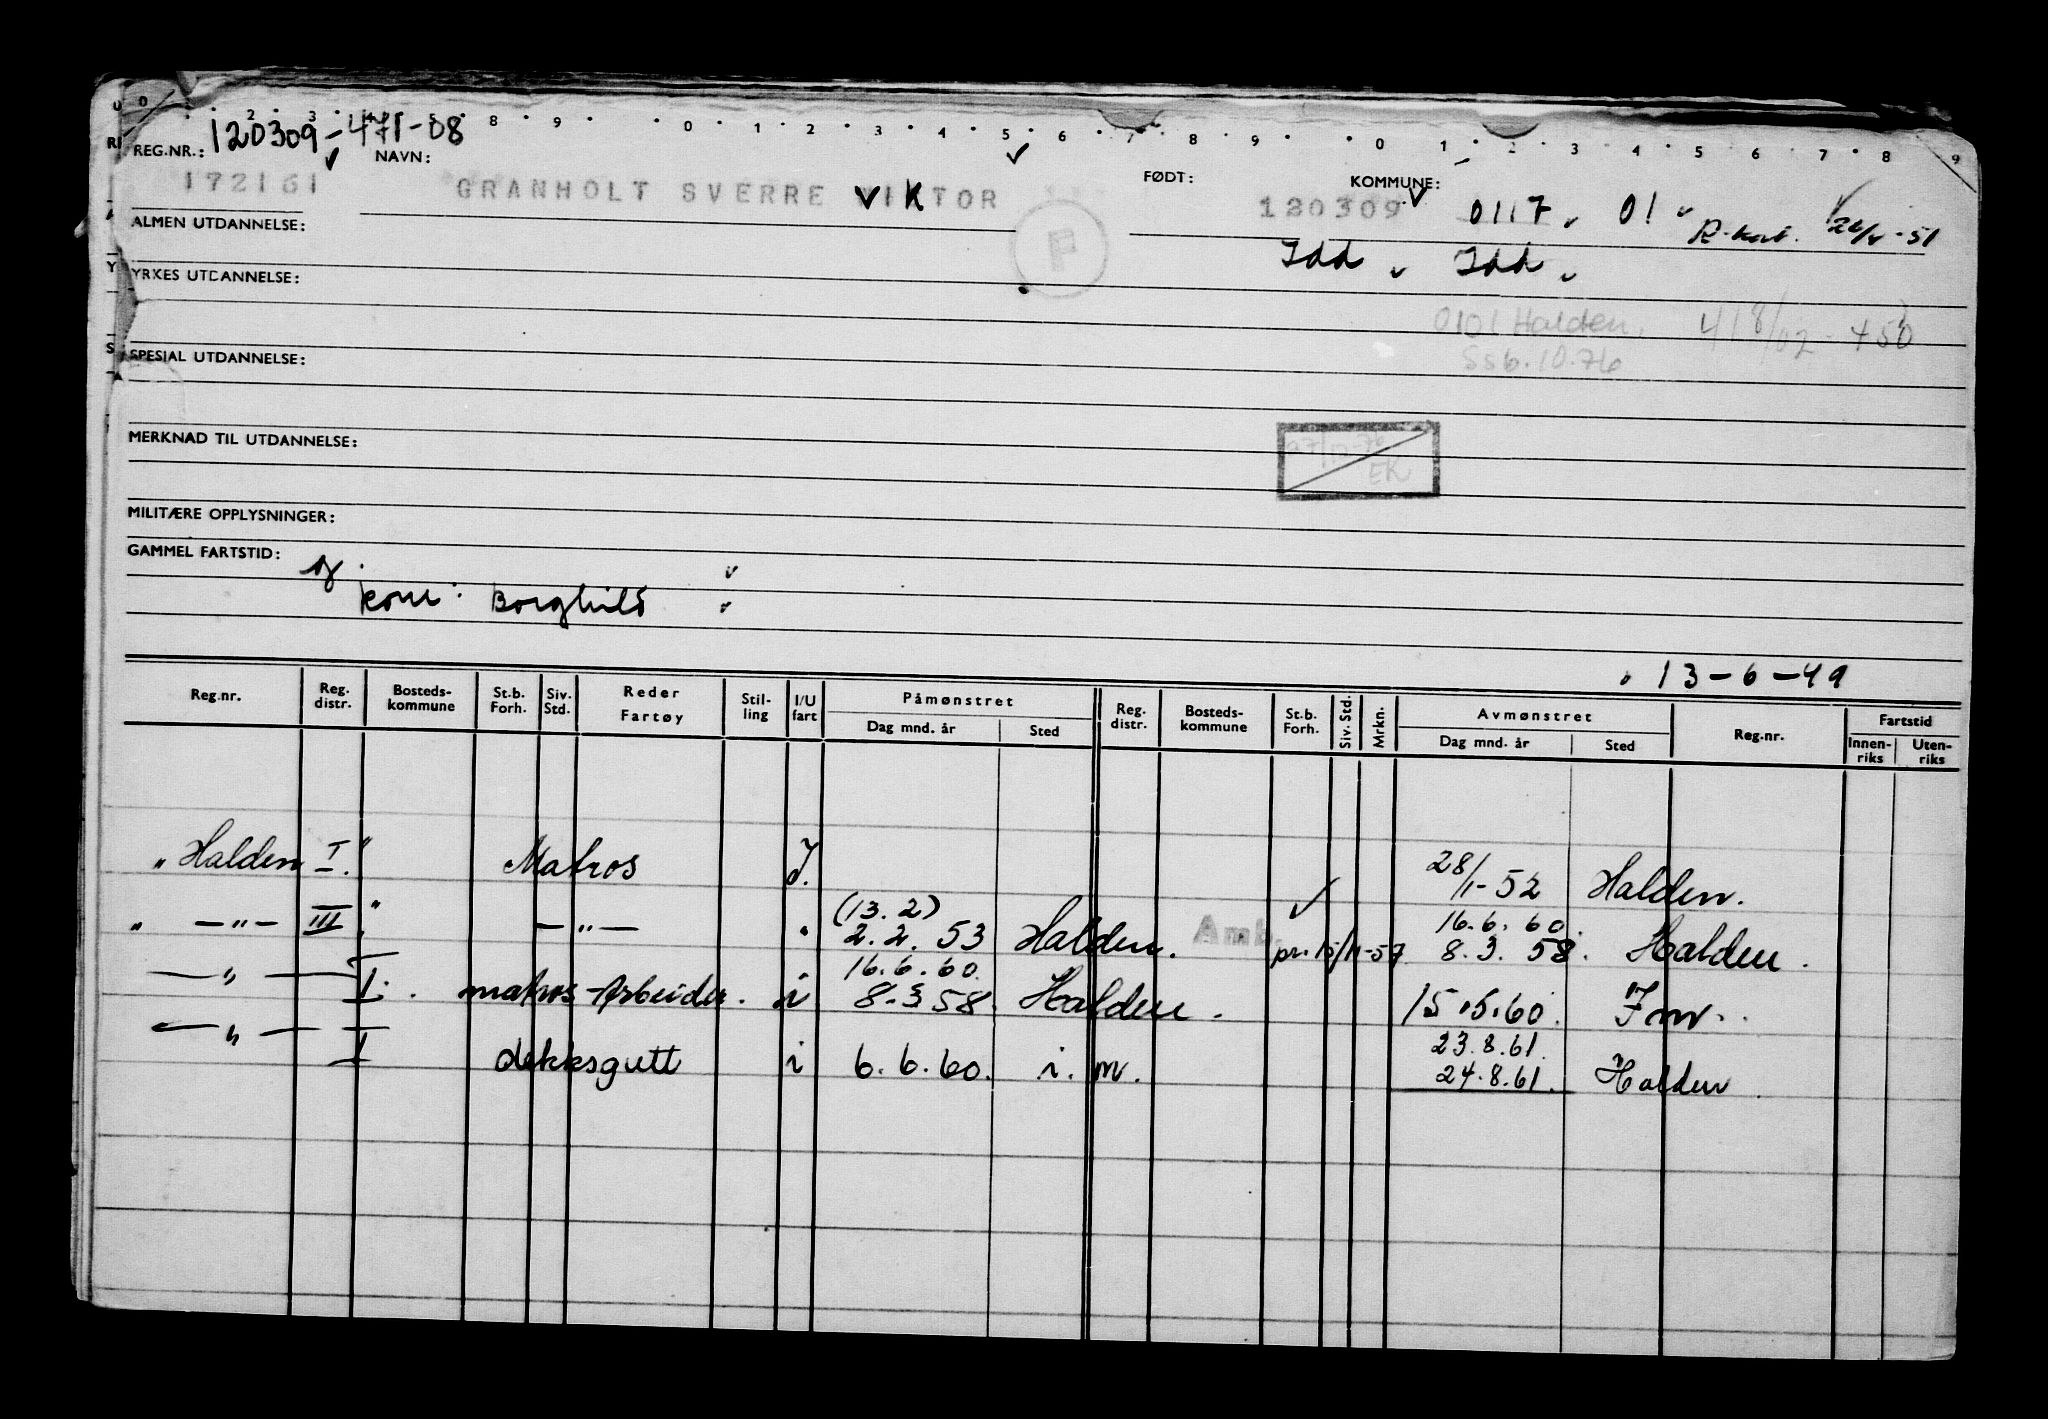 U 0 2 3 8 9 0 1 2 3 4 5 6 7 8 9 0 1 2 3 4 5 6 7 8 9
REG.NR.: 120309-471-08 NAVN: FØDT: KOMMUNE:
172161 GRANHOLT SVERRE VIKTOR 120309 0117 01
ALMEN UTDANNELSE: Idd Idd
YRKES UTDANNELSE:
0101 Halden, 418/02-450
SPESIAL UTDANNELSE: Ssb.10.76
MERKNAD TIL UTDANNELSE:
EK
MILITÆRE OPPLYSNINGER:
GAMMEL FARTSTID:
g.
kone: Borghild
13-6-49
Reg.nr. Reg. distr. Bosteds-kommune St.b. Forh. Siv. Std. Reder Fartøy Stil-ling I/U fart Påmønstret Dag mnd. år Sted Reg. distr. Bosteds-kommune St.b. Forh. Siv. Std. Mrkn. Avmønstret Dag mnd. år Sted Reg.nr. Fartstid Innen-riks Uten-riks
"Halden I" Matros I. 28/1-52 Halden.
(13.2) 16.6.60.
" —"— III" —"— " 2.2.53 Halden. Amb. pr. 15/11-57 8.3.58. Halden.
16.6.60.
—"— I. matros-Arbeider. i 8.3 58. Halden. 15.5.60. Im.
23.8.61.
—"— I dekksgutt i 6.6.60. i.m. 24.8.61. Halden